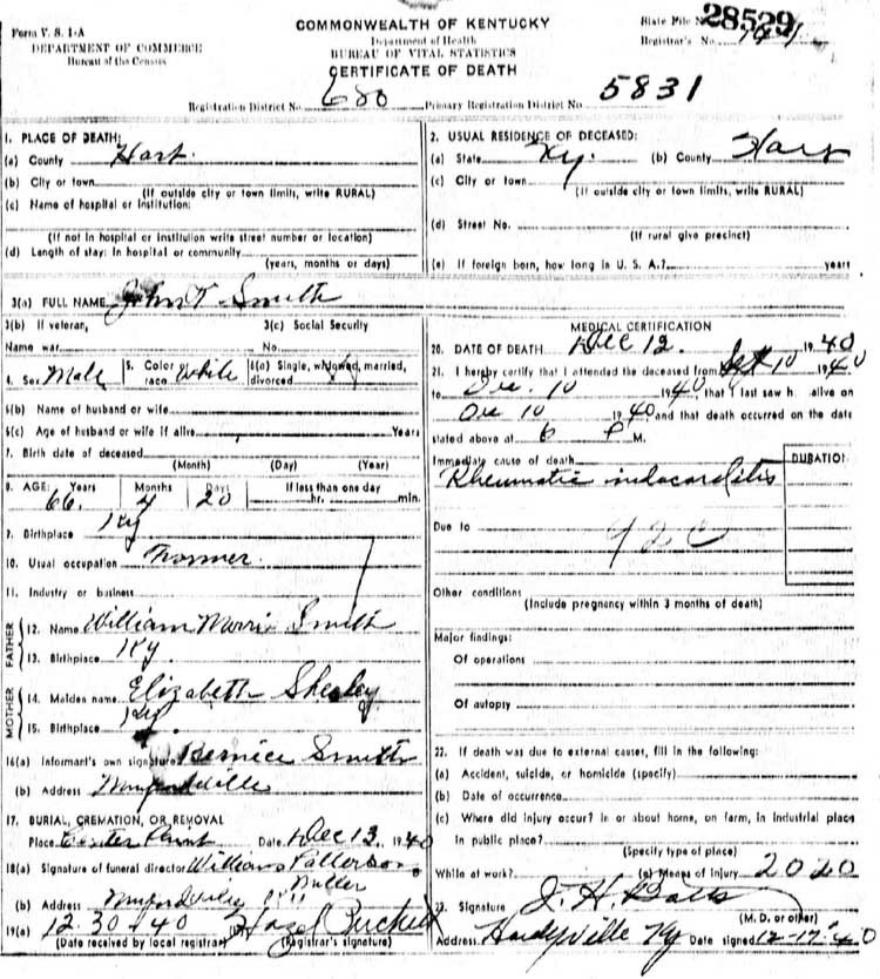 Form V. S. 1-A
DEPARTMENT OF COMMERCE
Bureau of the Census
COMMONWEALTH OF KENTUCKY
Department of Health
BUREAU OF VITAL STATISTICS
CERTIFICATE OF DEATH
State File No. 28529
Registrar's No.
Registration District No. 680 Primary Registration District No. 5831
1. PLACE OF DEATH:
(a) County Hart
(b) City or town
(If outside city or town limits, write RURAL)
(c) Name of hospital or institution:
(If not in hospital or institution write street number or location)
(d) Length of stay: In hospital or community
(years, months or days)
2. USUAL RESIDENCE OF DECEASED:
(a) State Ky. (b) County Hart
(c) City or town
(If outside city or town limits, write RURAL)
(d) Street No.
(If rural give precinct)
(e) If foreign born, how long in U. S. A.? years
3(a) FULL NAME John T Smith
3(b) If veteran,
Name war
3(c) Social Security
No.
4. Sex Male
5. Color or race White
6(a) Single, widowed, married, divorced
6(b) Name of husband or wife
6(c) Age of husband or wife if alive Years
7. Birth date of deceased
(Month) (Day) (Year)
8. AGE: Years Months Days If less than one day
66. 4 20 hr. min.
9. Birthplace Ky
10. Usual occupation
11. Industry or business
FATHER
12. Name William Morris Smith
13. Birthplace Ky.
MOTHER
14. Maiden name Elizabeth
15. Birthplace Ky.
16(a) Informant's own signature Bernice Smith
(b) Address Munfordville
17. BURIAL, CREMATION, OR REMOVAL
Place Date Dec 13, 1940
18(a) Signature of funeral director William Patterson
Butler
(b) Address Munfordville
19(a) 12-30-40 Hazel Puckett
(Date received by local registrar) (Registrar's signature)
MEDICAL CERTIFICATION
20. DATE OF DEATH Dec 12. 1940
21. I hereby certify that I attended the deceased from Sept 10 1940
to Dec. 10 1940, that I last saw h alive on
Dec 10 1940 and that death occurred on the date
stated above at 6 P M.
Immediate cause of death
DURATION
Rheumatic indocarditis
Due to 92c
Other conditions
(Include pregnancy within 3 months of death)
Major findings:
Of operations
Of autopsy
22. If death was due to external causes, fill in the following:
(a) Accident, suicide, or homicide (specify)
(b) Date of occurrence
(c) Where did injury occur? in or about home, on farm, in industrial place
in public place?
(Specify type of place)
While at work? (e) Means of injury 2020
23. Signature J. H. Batts
(M. D. or other)
Address Hardyville Ky Date signed 12-17-40